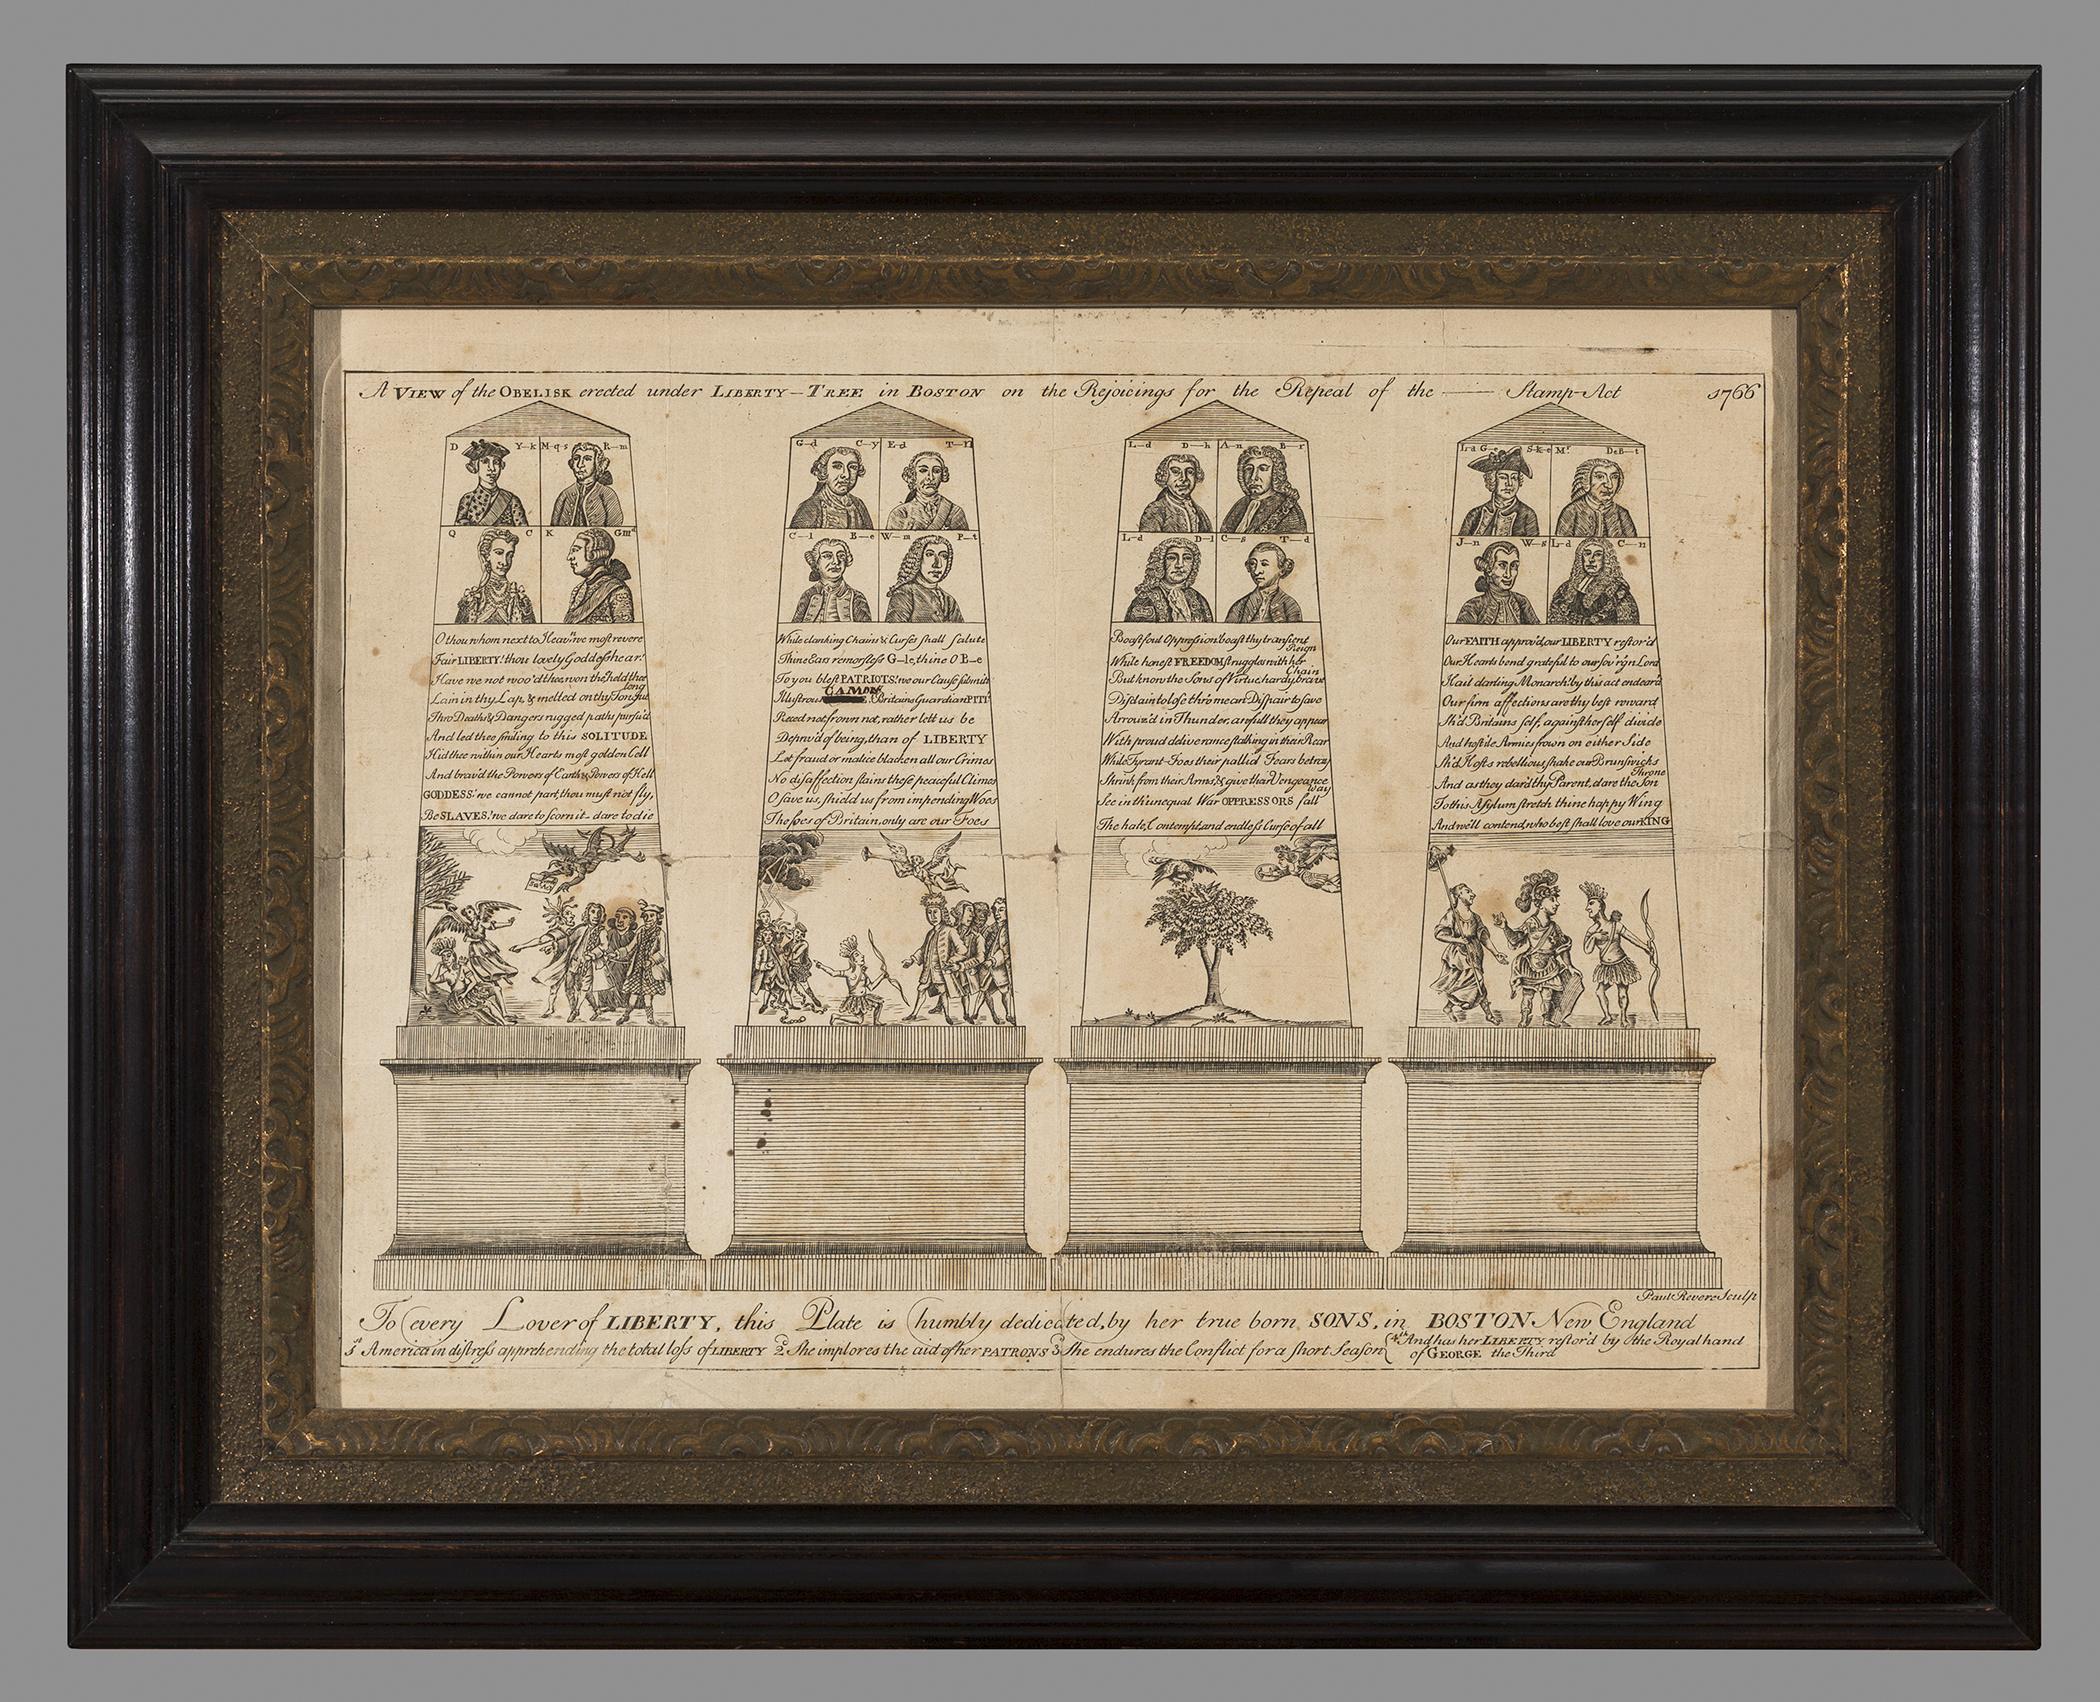 A VIEW of the OBELISK erected under LIBERTY-TREE in BOSTON on the Rejoicings for the Repeal of the —— Stamp-Act 1766
D Y-k M-q-s R-m
Q C K G
O thou whom next to Heav'n we most revere
Fair LIBERTY! thou lovely Goddess hear!
Have we not woo'd thee, won thee, held thee long
Lain in thy Lap, & melted on thy Tongue
Thro Deaths & Dangers rugged paths pursu'd
And led thee smiling to this SOLITUDE
Hid thee within our Hearts most golden Cell
And brav'd the Powers of Earth & Powers of Hell
GODDESS! we cannot part, thou must not fly,
Be SLAVES! we dare to scorn it - dare to die
G-d C-y E-d T-n
C-l B-e W-m P-t
While clanking Chains & Curses shall salute
Thine Ears remorsless G-le, thine O B-e
To you blest PATRIOTS! we our Cause submit
Illustrous CAMDEN Britains Guardian PITT!
Reced not, frown not, rather lett us be
Depriv'd of being, than of LIBERTY
Let fraud or malice blacken all our Crimes
No disaffection stains these peaceful Climes
O save us, shield us from impending Woes
The foes of Britain, only are our Foes
L-d D-h A-n B-r
L-d D-l C-s T-d
Boast foul Oppression! boast thy transient Reign
While honest FREEDOM struggles with her Chain
But know the Sons of Virtue, hardy, brave
Disdain to lose thro mean Dispair to save
Arrouz'd in Thunder, awfull they appear
With proud deliverance stalking in their Rear
While Tyrant-Foes their pallid Fears betray
Shrink from their Arms, & give their Vengeance way
See in th'unequal War OPPRESSORS fall
The hate, Contempt, and endless Curse of all
L-d G-e S-k-e Mr DeB-t
J-n W-s L-d C-n
Our FAITH approv'd, our LIBERTY restor'd
Our Hearts bend grateful to our sov'r'gn Lord
Hail darling Monarch! by this act endear'd
Our firm affections are thy best reward
Sh'd Britains self, against herself divide
And hostile Armies frown on either Side
Sh'd Hosts rebellious, shake our Brunswick's Throne
And as they dar'd thy Parent, dare the Son
To this Asylum stretch thine happy Wing
And we'll contend, who best shall love our KING
Paul Revere Sculp
To every Lover of LIBERTY, this Plate is humbly dedicated, by her true born SONS, in BOSTON New England
1st America in distress apprehending the total loss of LIBERTY 2d She implores the aid of her PATRONS 3d She endures the Conflict for a short Season 4th And has her LIBERTY restor'd by the Royal hand
of GEORGE the Third